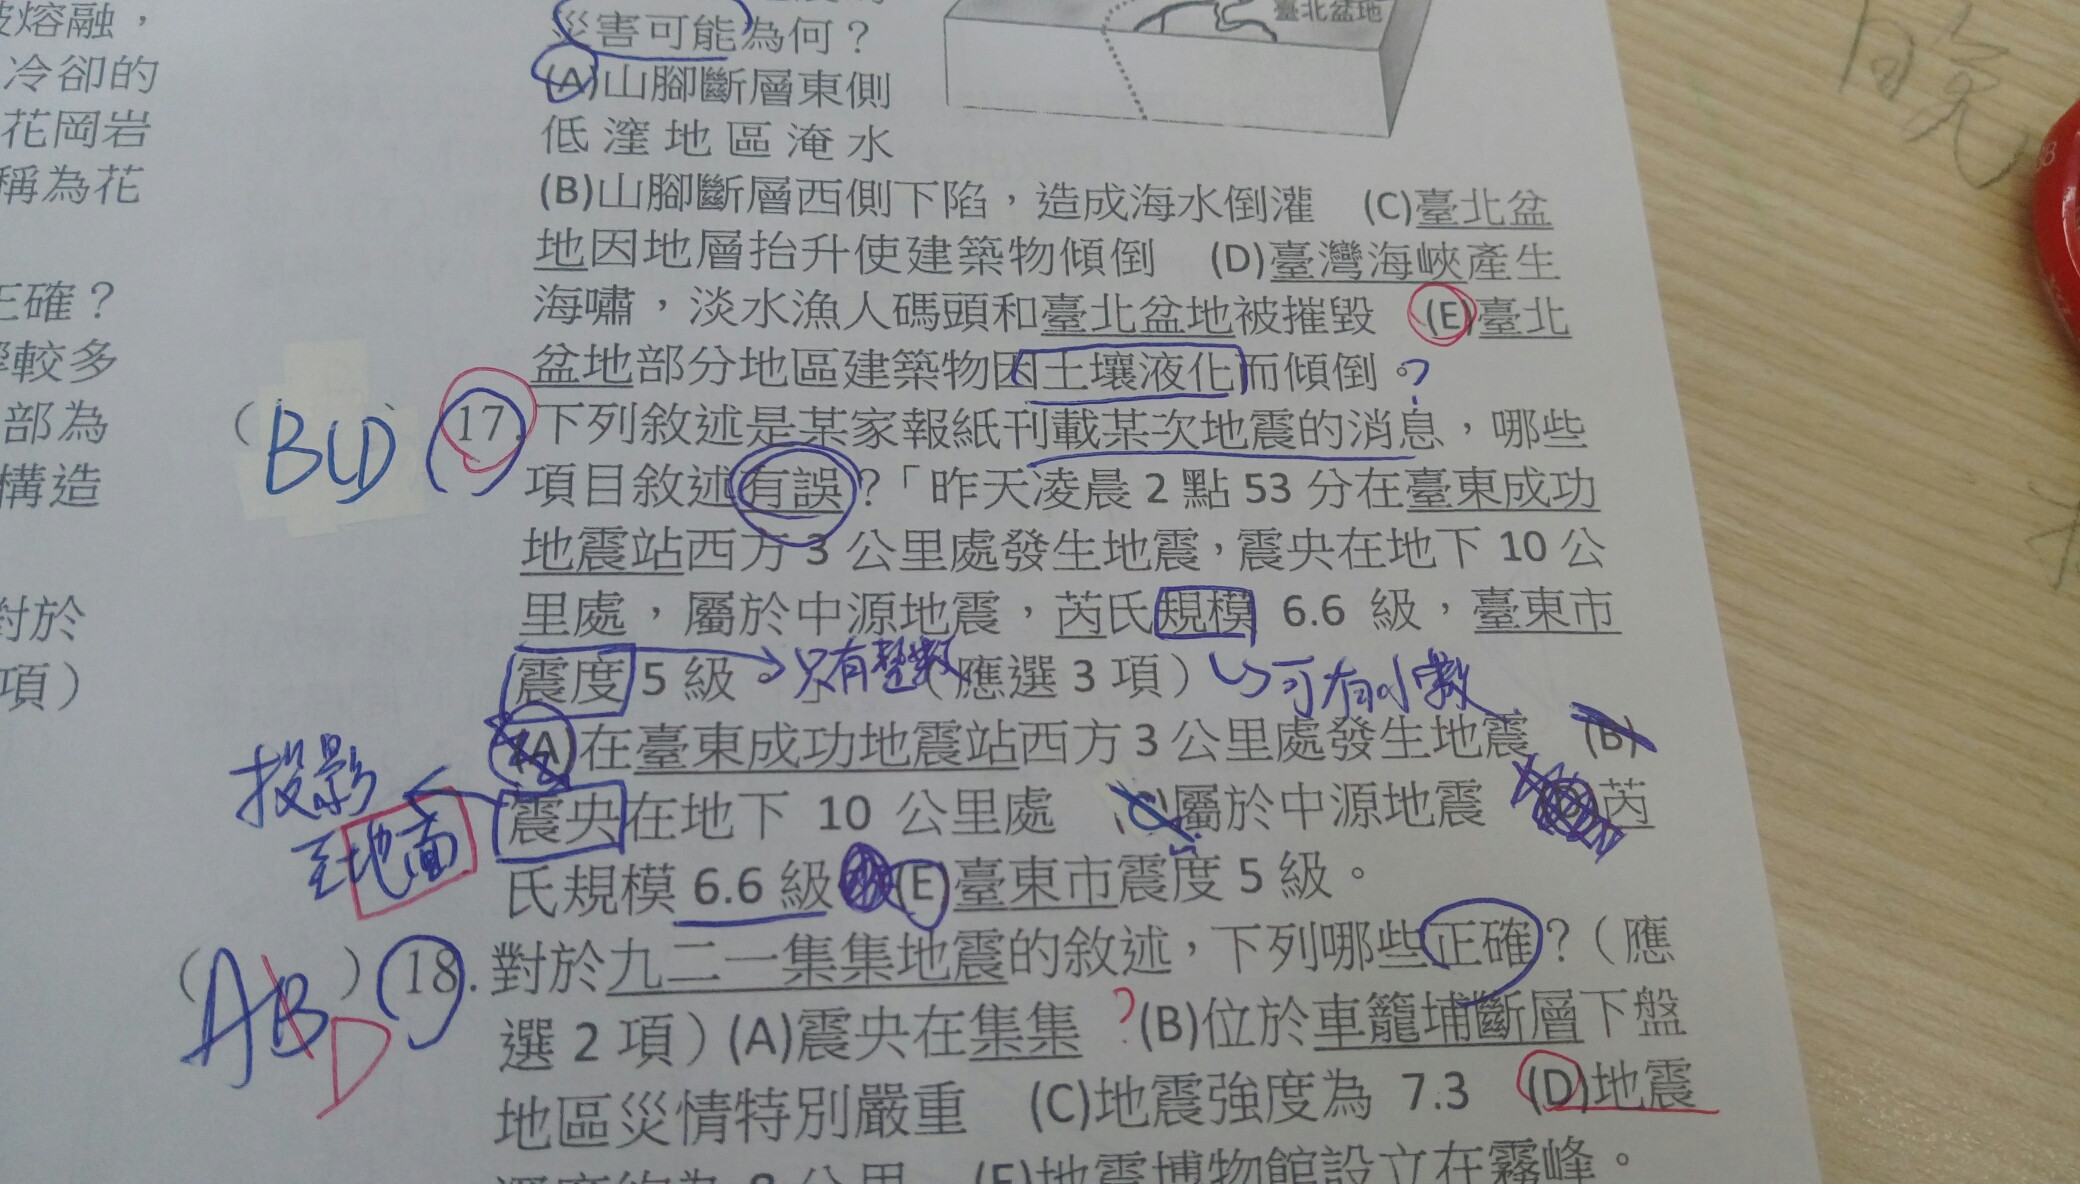 熔融，
冷卻的
花岡岩
稱為花
正確？
較多
部為
構造
對於
項）
臺北盆地
災害可能為何？
(A)山腳斷層東側
低窪地區淹水
(B)山腳斷層西側下陷，造成海水倒灌 (C)臺北盆
地因地層抬升使建築物傾倒 (D)臺灣海峽產生
海嘯，淡水漁人碼頭和臺北盆地被摧毀 (E)臺北
盆地部分地區建築物因土壤液化而傾倒。?
( BCD ) 17. 下列敘述是某家報紙刊載某次地震的消息，哪些
項目敘述有誤？「昨天凌晨 2 點 53 分在臺東成功
地震站西方 3 公里處發生地震，震央在地下 10 公
里處，屬於中源地震，芮氏規模 6.6 級，臺東市
震度 5 級。」（應選 3 項）
只有整數
可有小數
(A)在臺東成功地震站西方 3 公里處發生地震 (B)
震央在地下 10 公里處 (C)屬於中源地震 (D)芮
氏規模 6.6 級 (E)臺東市震度 5 級。
投影
至地面
( AB D ) 18. 對於九二一集集地震的敘述，下列哪些正確？（應
選 2 項）(A)震央在集集 ? (B)位於車籠埔斷層下盤
地區災情特別嚴重 (C)地震強度為 7.3 (D)地震
深度約為 8 公里 (E)地震博物館設立在霧峰。